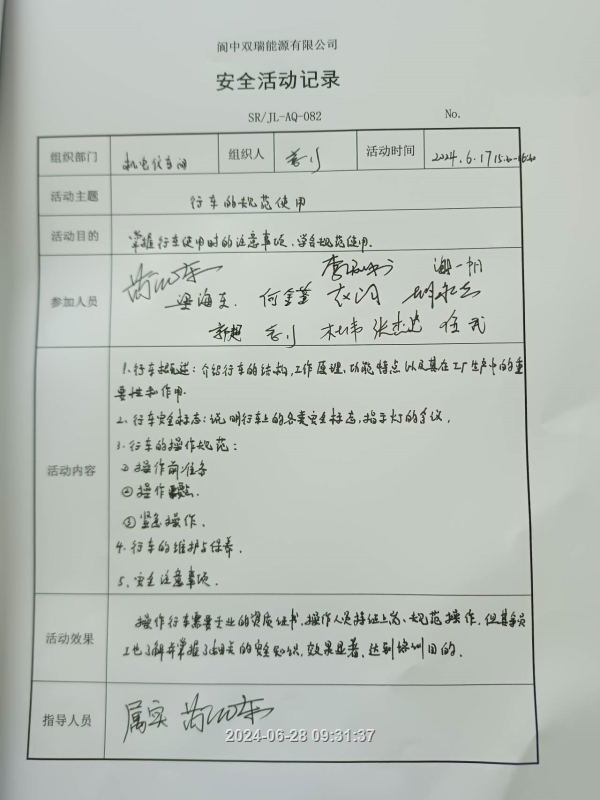 阆中双瑞能源有限公司
安全活动记录
SR/JL-AQ-082 No.
组织部门 机电仪车间 组织人 活动时间 2024.6.17 15:00-16:00
活动主题 行车的规范使用
活动目的 掌握行车使用时的注意事项,学会规范使用.
参加人员
梁海东 何金蓬
张杰 任武
活动内容
1.行车概述:介绍行车的结构,工作原理,功能特点以及其在工厂生产中的重
要性和作用.
2.行车安全标志:说明行车上的各类安全标志,指示灯的含义.
3.行车的操作规范:
①操作前准备
②操作
③紧急操作.
4.行车的维护与保养.
5.安全注意事项.
活动效果
操作行车需要专业的资质证书,操作人员持证上岗、规范操作,但其余员
工也了解并掌握了相关的安全知识,效果显著,达到培训目的.
指导人员 属实
2024-06-28 09:31:37